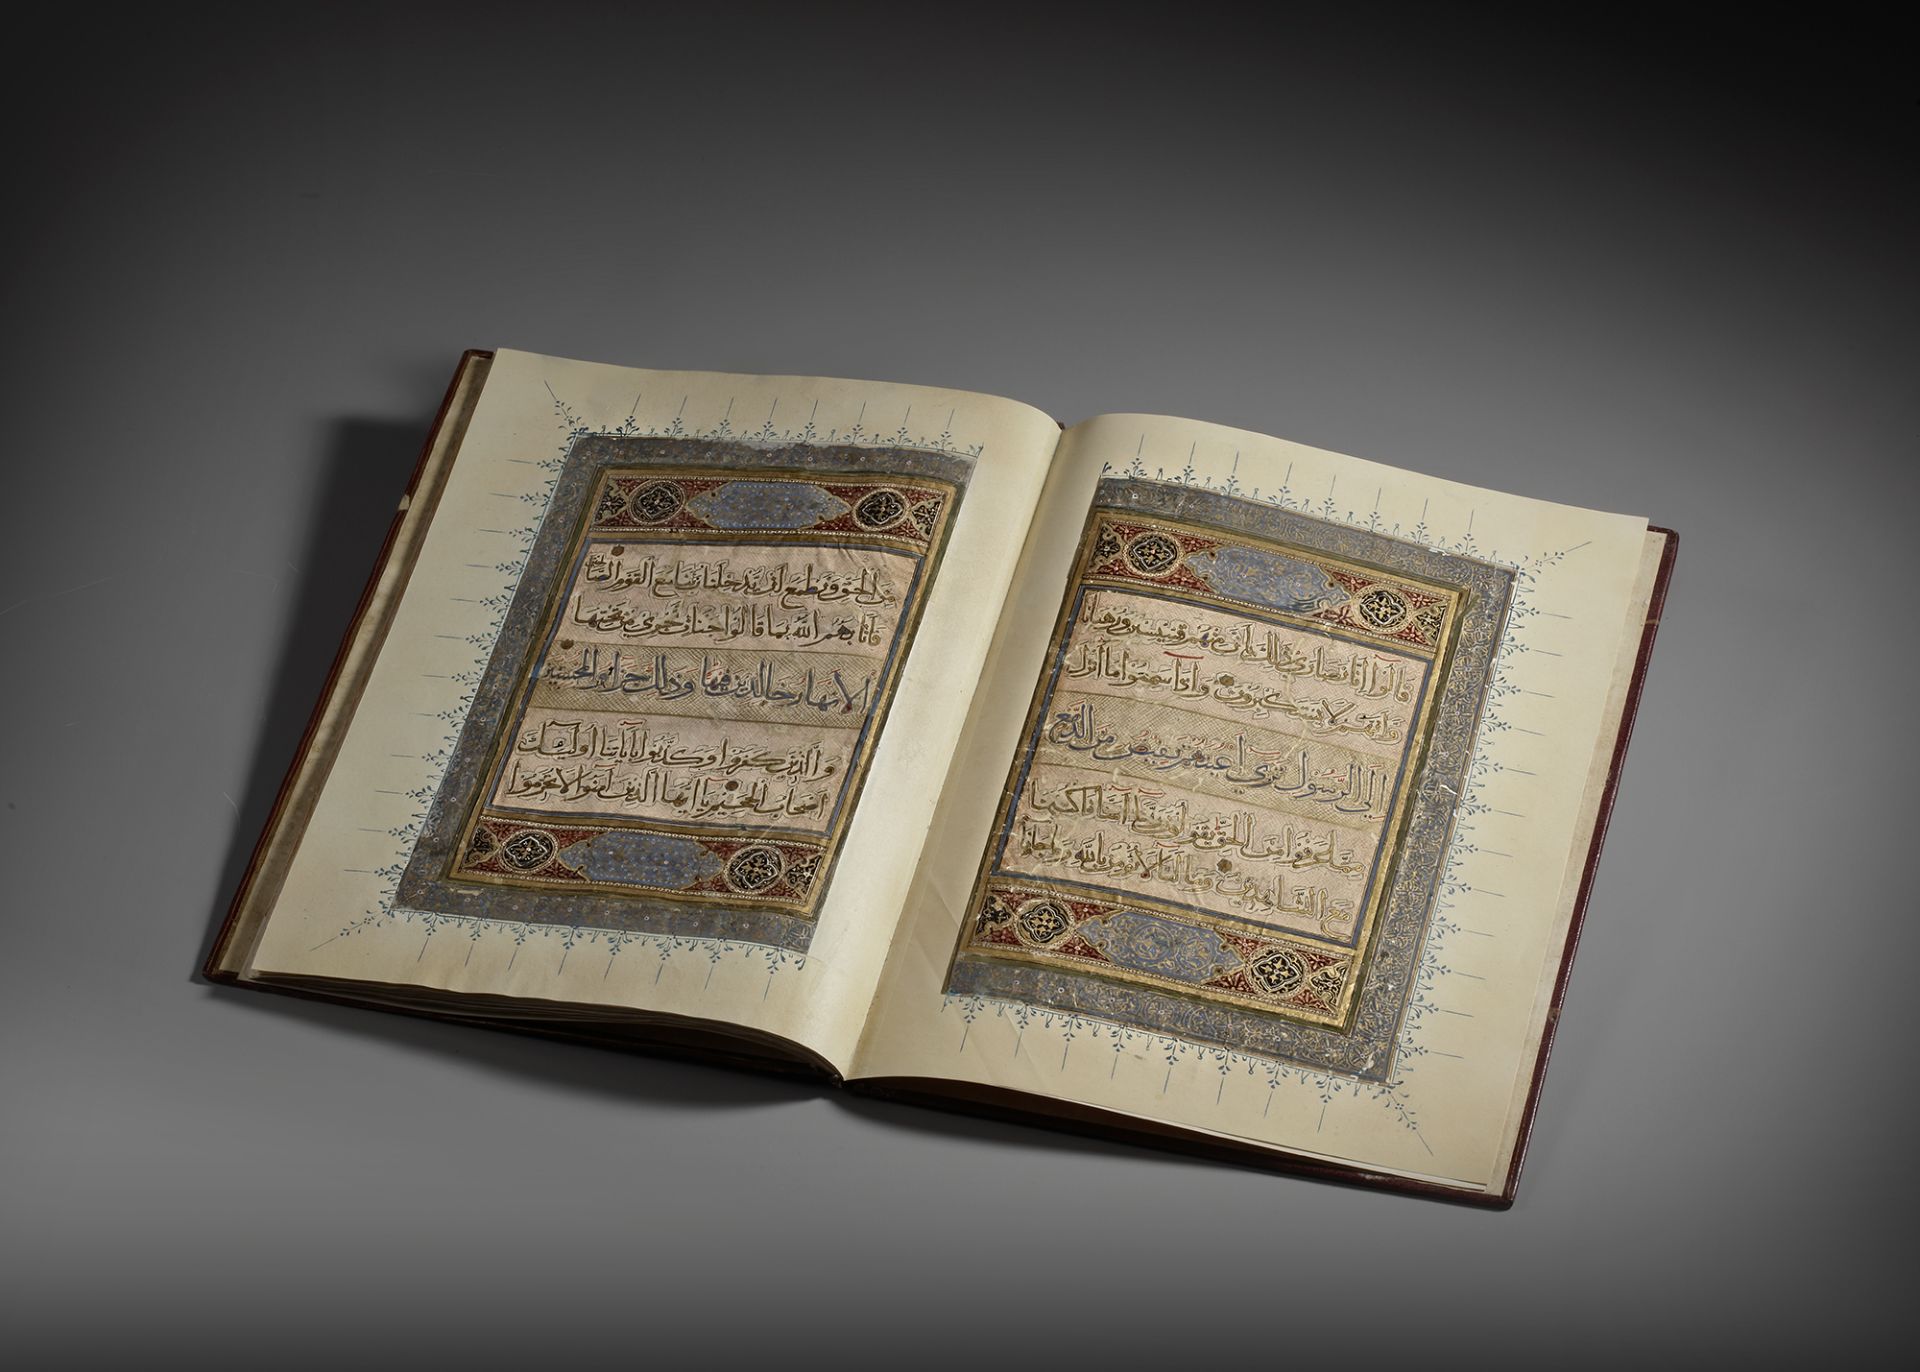 قالوا انا نصارى ذلك بان منهم قسيسين ورهبانا
وانهم لا يستكبرون واذا سمعوا ما أنزل
إلى الرسول ترى أعينهم تفيض من الدمع
مما عرفوا من الحق يقولون ربنا آمنا فاكتبنا
مع الشاهدين وما لنا لا نؤمن بالله وما جاءنا
من الحق ونطمع ان يدخلنا ربنا مع القوم الصالحين
فأثابهم الله بما قالوا جنات تجري من تحتها
الأنهار خالدين فيها وذلك جزاء المحسنين
والذين كفروا وكذبوا بآياتنا أولئك
اصحاب الجحيم يا ايها الذين آمنوا لا تحرموا